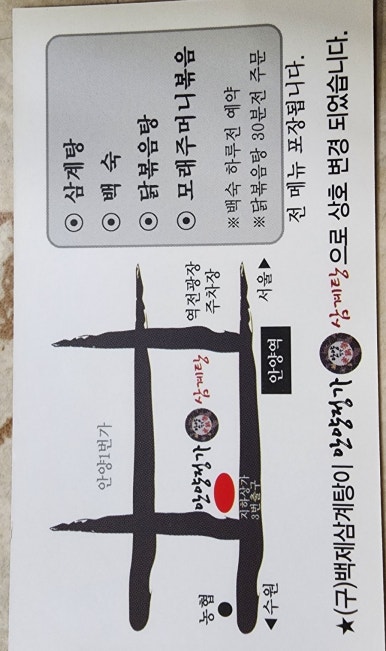 ⊙ 삼계탕
⊙ 백 숙
⊙ 닭볶음탕
⊙ 모래주머니볶음
※백숙 하루전 예약
※닭볶음탕 30분전 주문
전 메뉴 포장됩니다.
안양1번가
역전광장
주차장
삼계탕
농협
지하상가
3번출구
안양역
◀수원
서울▶
★(구)백제삼계탕이 삼계탕으로 상호 변경 되었습니다.